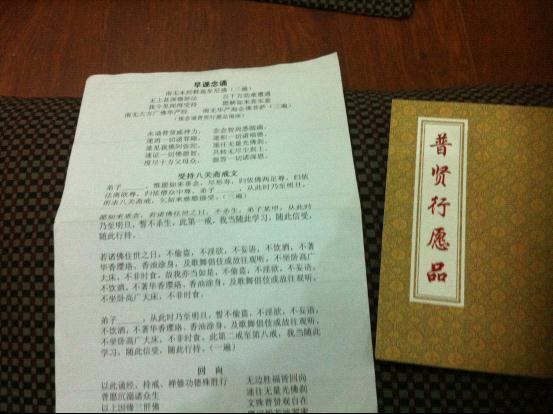 早课念诵
南无本师释迦牟尼佛（三遍）
无上甚深微妙法 百千万劫难遭遇
我今见闻得受持 愿解如来真实意
南无大方广佛华严经 南无华严海会佛菩萨（三遍）
永诵普贤威神力
速消一切诸罪障 速积一切诸福德
速见我佛阿弥陀 速往无量光佛刹
速证一切佛
度尽十方父母众 报答一切诸深恩
受持八关斋戒文
弟子____，惟愿如来垂念，尽形寿，归依佛两足尊，归依
法离欲尊，归依僧众中尊，弟子____，从此时乃至明旦，
所求八关斋戒，乞如来慈愍摄受。（三遍）
愿如来垂念，若诸佛住世之日，不杀生，弟子某甲，从此时
乃至明旦，誓不杀生，此第一戒，我当随此学习，随此信受，
随此行持。
若诸佛住世之日，不偷盗，不淫欲，不妄语，不饮酒，不著
华香璎珞、香油涂身，及歌舞倡伎或故往观听，不坐卧高广
大床，不非时食，故我亦当如是，不偷盗，不淫欲，不妄语，
不饮酒，不著华香璎珞、香油涂身，及歌舞倡伎或故往观听，
不坐卧高广大床，不非时食。
弟子____，从此时乃至明旦，誓不偷盗，不淫欲，不妄语，
不饮酒，不著华香璎珞、香油涂身，及歌舞倡伎或故往观听，
不坐卧高广大床，不非时食，此第二戒至第八戒，我当随此
学习，随此信受，随此行持。（一遍）
回 向
以此诵经、持戒、禅修功德殊胜行 无边胜福皆回向
普愿沉溺诸众生 速往无量光佛刹
以上因缘三世佛 文殊普贤观自在
普贤行愿品